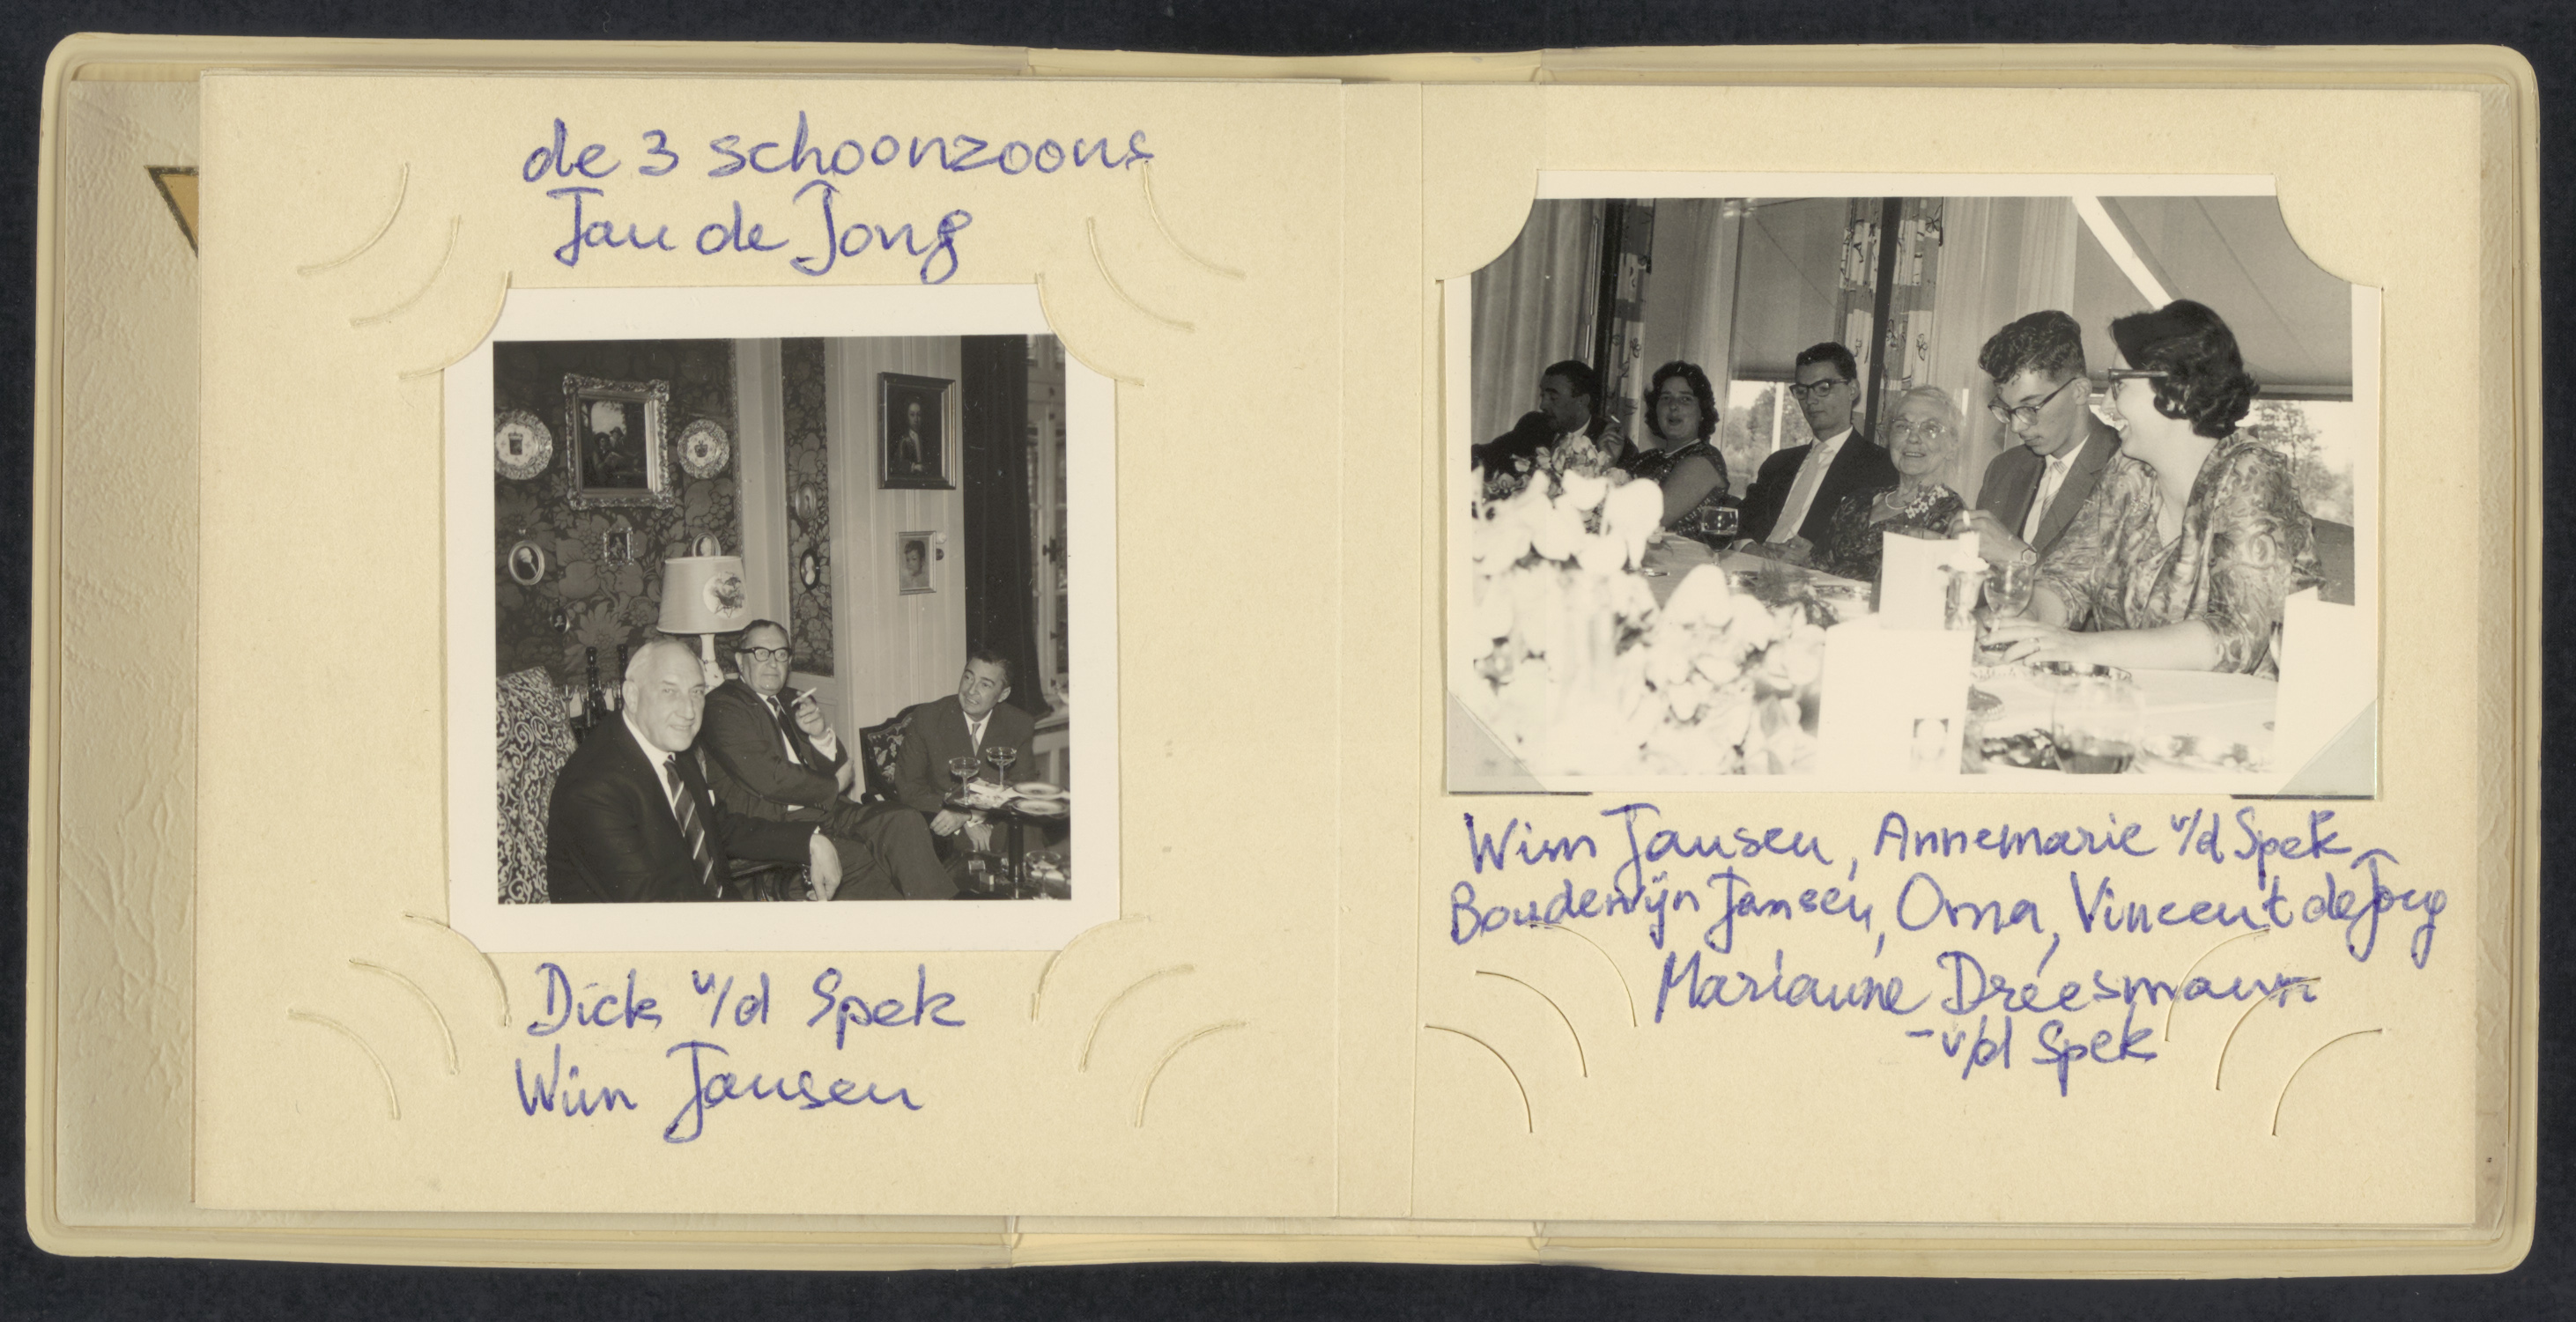 de 3 schoonzoons
Jan de Jong
Dick v/d Spek
Wim Jansen
Wim Jansen, Annemarie v/d Spek
Boudewijn Jansen, Oma, Vincent de Jong
Marianne Dreesmann
- v/d Spek